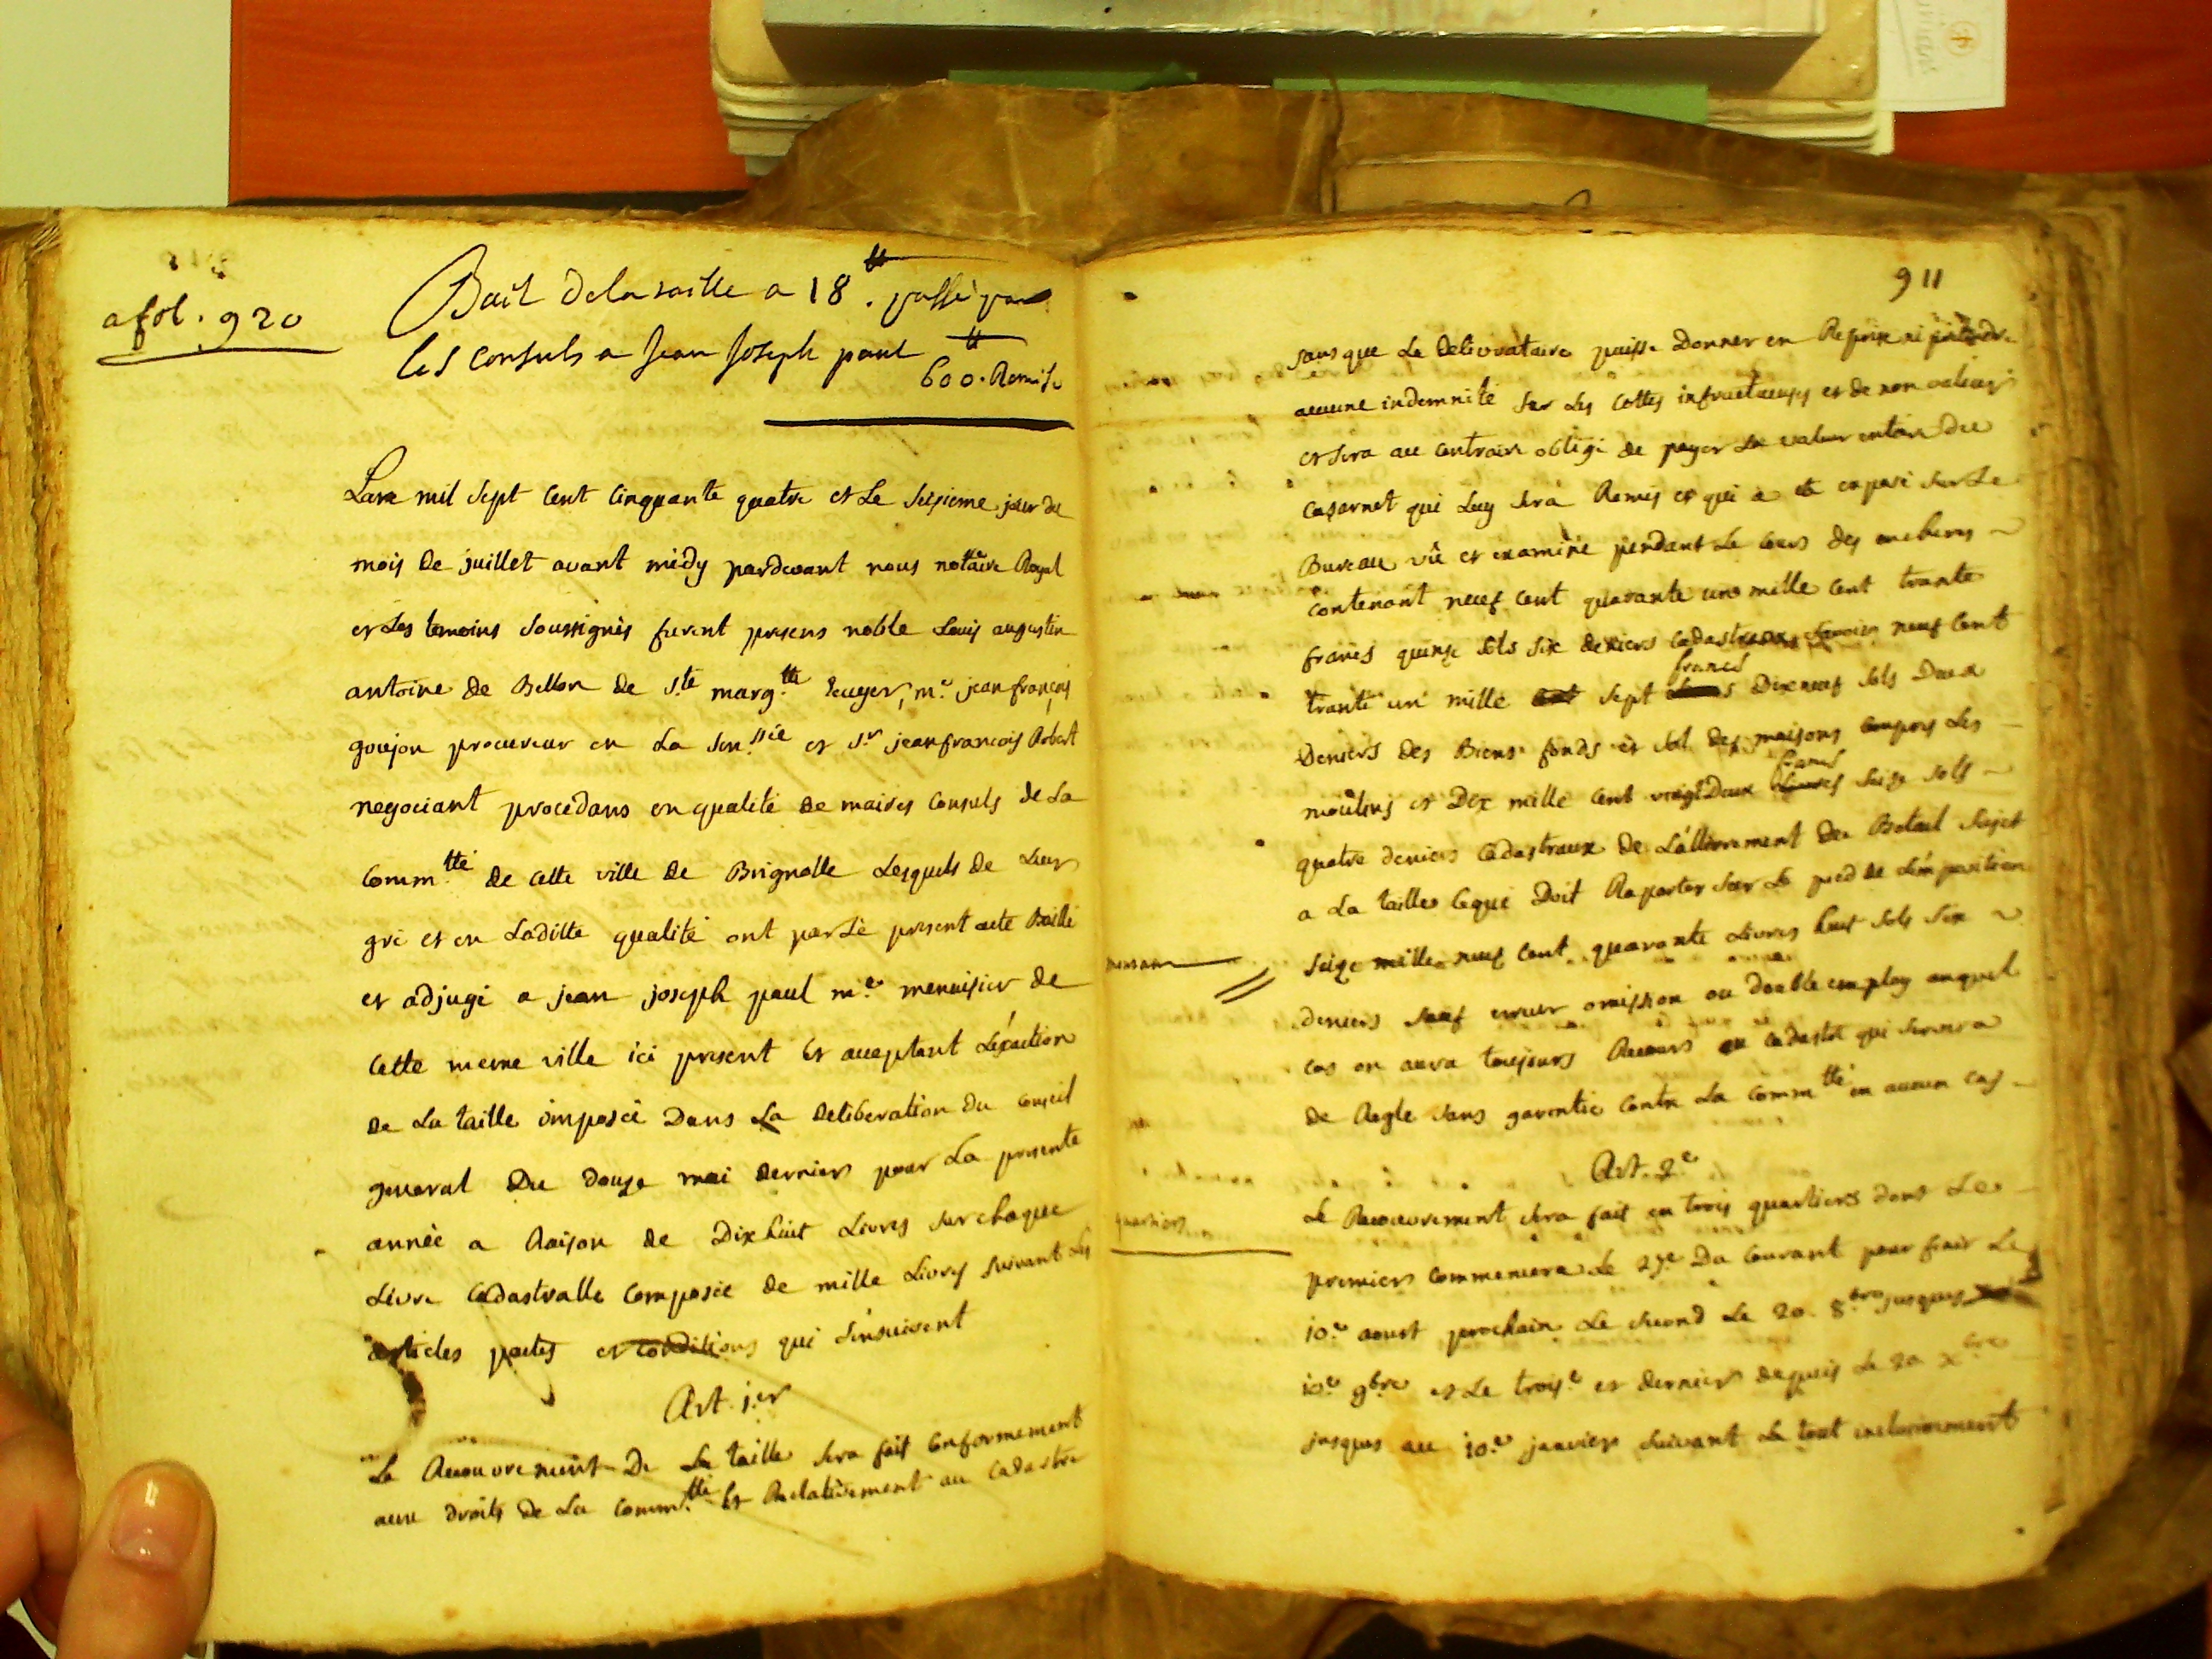 a fol. 920
Bail dela taille a 18 tt. passé par
les consuls a Jean Joseph paul
600 tt. Remise
Lan mil sept cent cinquante quatre et Le seisieme jour du
mois de juillet avant midy pardevant nous notaire Royal
et Les temoins soussignés furent presens noble Louis augustin
antoine de Bellon de s.te marg.tte Ecuyer, m.e jean françois
goujon procureur en La sen.ssée et s.r jean françois Robert
negociant procedans en qualité de maires consuls de La
comm.tté de cette ville de Brignolle Lesquels de Leur
gré et en Laditte qualité ont par Le present acte Baillé
et adjugé a jean joseph paul m.e menuisier de
cette meme ville ici present et acceptant L'éxaction
de La taille imposée Dans La deliberation du conseil
general Du douze mai dernier pour La presente
année a Raison de Dix huit Livres sur chaque
Livre cadastralle composée de mille Livres suivant Les
articles pactes et conditions qui s'ensuivent
Art. j.er
Le Recouvrement De La taille sera fait conformement
aux droits de La comm.tté et Relativement au cadastre
911
sans que Le delivrataire puisse Donner en Reprise ni pretendre
aucune indemnité sur Les cottes infructueuses et de non valeur
et sera au contraire obligé de payer La valeur entiere du
casarnet qui Luy sera Remis et qui a eté exposé sur Le
Bureau vû et examiné pendant Le cours des encheres
contenant neuf cent quarante un mille cent trante
francs quinze sols six deniers cadastraux savoir neuf cent
trante un mille sept francs Dixneuf sols Deux
Deniers des Biens fonds et sol des maisons compris Les
moulins et Dix mille cent vingt Deux francs seize sols
quatre deniers cadastraux de L'allivrement du Betail sujet
a La taille Cequi Doit Raporter sur Le pied de L'imposition
seize mille neuf cent quarante Livres huit sols six
deniers sauf erreur omission ou double employ auquel
cas on aura toujours Recours au cadastre qui servira
de Regle sans garentie contre La comm.tté en aucun cas
Art. 2.e
quartiers
Le Recouvrement sera fait en trois quartiers dont Le
premier commencera Le 25.e Du courant pour finir Le
10.e aoust prochain Le second Le 20. 8.bre jusques
10.e 9bre et Le trois.e et dernier depuis Le 20 X.bre
jusques au 10.e janvier suivant Le tout inclusivement